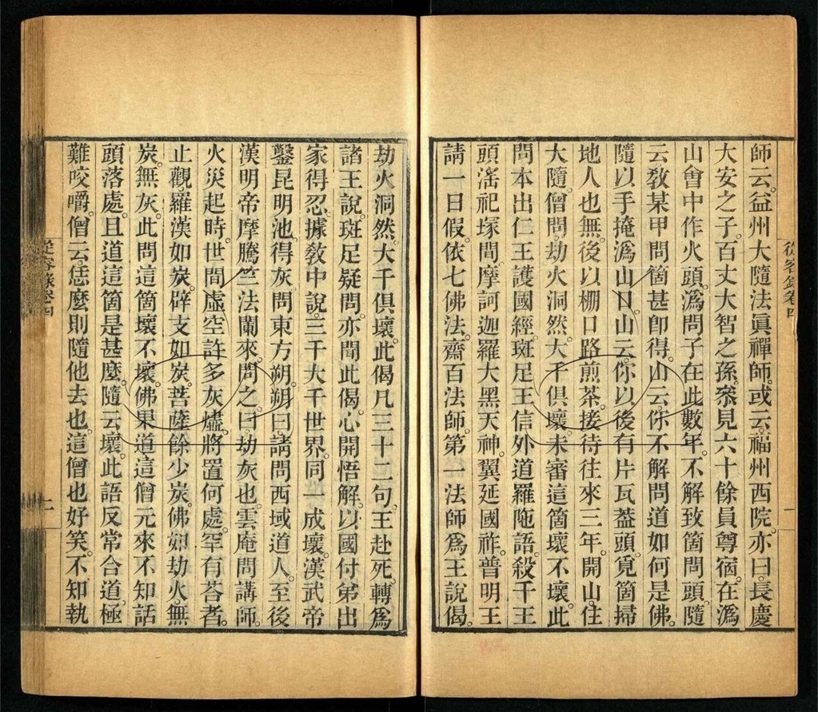 師云。益州大隨法眞禪師。或云。福州西院。亦曰。長慶
大安之子。百丈大智之孫。叅見六十餘員尊宿。在溈
山會中作火頭。溈問。子在此數年。不解致箇問頭。隨
云。敎某甲問箇甚卽得。山云。你不解問道如何是佛。
隨以手掩溈山口。山云。你以後有片瓦葢頭。覓箇掃
地人也無。後以棚口路煎茶。接待往來三年。開山住
大隨。僧問。劫火洞然。大千俱壞。未審這箇壞不壞。此
問本出仁王護國經。斑足王信外道羅陁語。殺千王
頭。溼祀塚間摩訶迦羅大黑天神。翼延國祚。普明王
請一日假。依七佛法齋百法師。第一法師爲王說偈。
從容錄卷四
一
劫火洞然。大千俱壞。此偈凡三十二句。王赴死。轉爲
諸王說。斑足疑問。亦聞此偈。心開悟解。以國付弟出
家得忍。據敎中說。三千大千世界。同一成壞。漢武帝
鑿昆明池。得灰問東方朔。朔曰。請問西域道人。至後
漢明帝摩騰竺法蘭來。問之。曰。劫灰也。雲庵問講師。
火災起時。世間虛空許多灰燼。將置何處。罕有荅者。
止觀羅漢如炭。辟支如炭。菩薩餘少炭。佛如劫火無
炭無灰。此問這箇壞不壞。佛果道。這僧元來不知話
頭落處。且道這箇是甚麼。隨云壞。此語反常合道。極
難咬嚼。僧云。恁麼則隨他去也。這僧也好笑。不知執
從容錄卷四